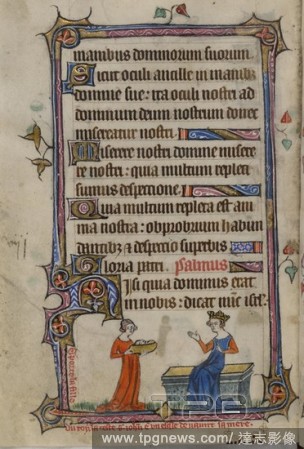 manibus dominorum suorum.
Sicut oculi ancille in manibȝ
domine sue: ita oculi nostri ad
dominum deum nostrum donec
misereatur nostri.
Miserere nostri domine misere
re nostri: quia multum repleti
sumus despectione
Quia multum repleta est ani
ma nostra: obprobrium habun
dantibus et despectio superbis
Gloria patri. psalmus
Nisi quia dominus erat
in nobis: dicat nunc isrl:
TPG
www.tpgnews.com/達志影像